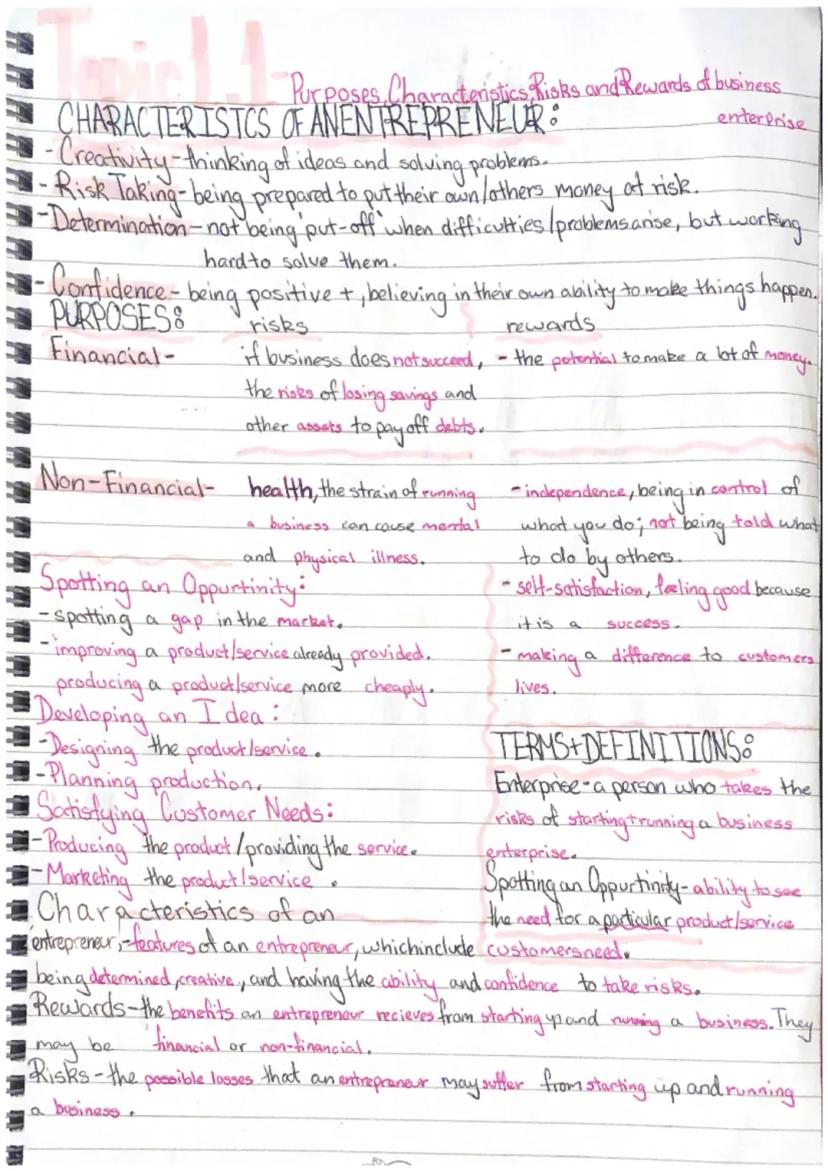 Topic 1.1-
Purposes, Characteristics, Risks and Rewards of business
enterprise
CHARACTERISTCS OF AN ENTREPRENEUR:
- Creativity - thinking of ideas and solving problems.
- Risk Taking - being prepared to put their own/others money at risk.
- Determination - not being 'put-off' when difficulties/problems arise, but working
hard to solve them.
- Confidence - being positive +, believing in their own ability to make things happen.
PURPOSES:
risks
rewards
Financial-
if business does not succeed,
the risks of losing savings and
other assets to pay off debts.
- the potential to make a lot of money.
Non-Financial-
health, the strain of running
a business can cause mental
and physical illness.
- independence, being in control of
what you do; not being told what
to do by others.
- self-satisfaction, feeling good because
it is a success.
- making a difference to customers
lives.
Spotting an Oppurtinity:
- spotting a gap in the market.
- improving a product/service already provided.
producing a product/service more cheaply.
Developing an Idea:
- Designing the product/service.
- Planning production.
Satisfying Customer Needs:
- Producing the product/providing the service.
- Marketing the product/service.
TERMS+DEFINITIONS:
Enterprise - a person who takees the
risks of starting+running a business
enterprise.
Spotting an Oppurtinity - ability to see
the need for a particular product/service
customers need.
Characteristics of an
entrepreneur, - features of an entrepreneur, which include
being determined, creative, and having the ability and confidence to take risks.
Rewards - the benefits an entrepreneur recieves from starting up and running a business. They
may be financial or non-financial.
Risks - the possible losses that an entrepreneur may suffer from starting up and running
a business.